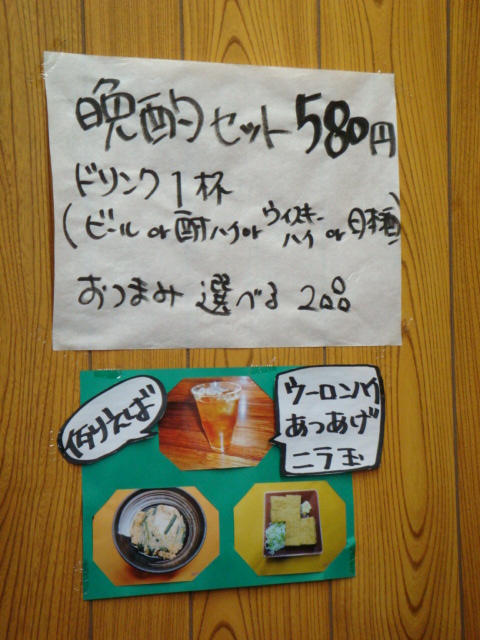 晩酌セット 580円
ドリンク1杯
(ビール or 酎ハイ or ウイスキーハイ or 日本酒)
おつまみ 選べる 2品
例えば
ウーロンハイ
あつあげ
ニラ玉